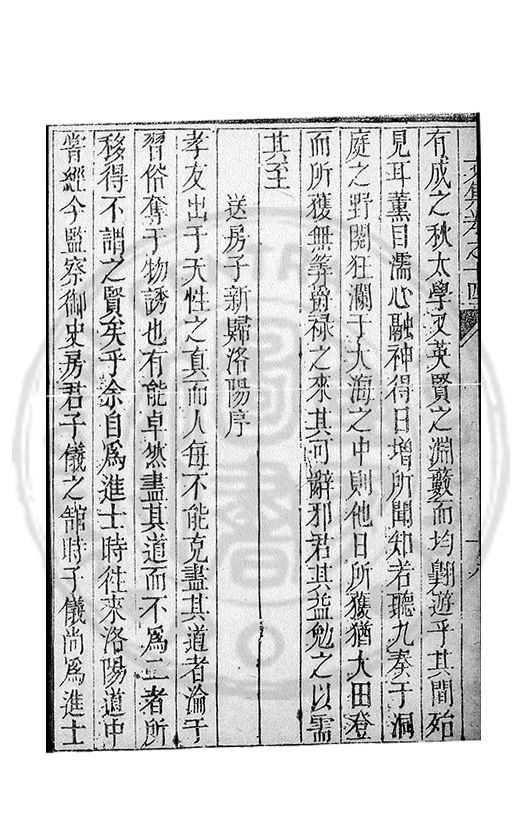 有成之秋太學又英賢之淵藪而均翺遊乎其間殆
見耳薰目濡心融神得日增所聞知若聽九奏于洞
庭之野閱狂瀾于大海之中則他日所獲猶大田登
而所獲無筭爵祿之來其可辭邪君其益勉之以需
其至
送房子新歸洛陽序
孝友出于天性之真而人每不能克盡其道者淪于
習俗奪于物誘也有能卓然盡其道而不爲二者所
移得不謂之賢矣乎余自爲進士時徃來洛陽道中
甞經今監察御史房君子儀之舘時子儀尚爲進士